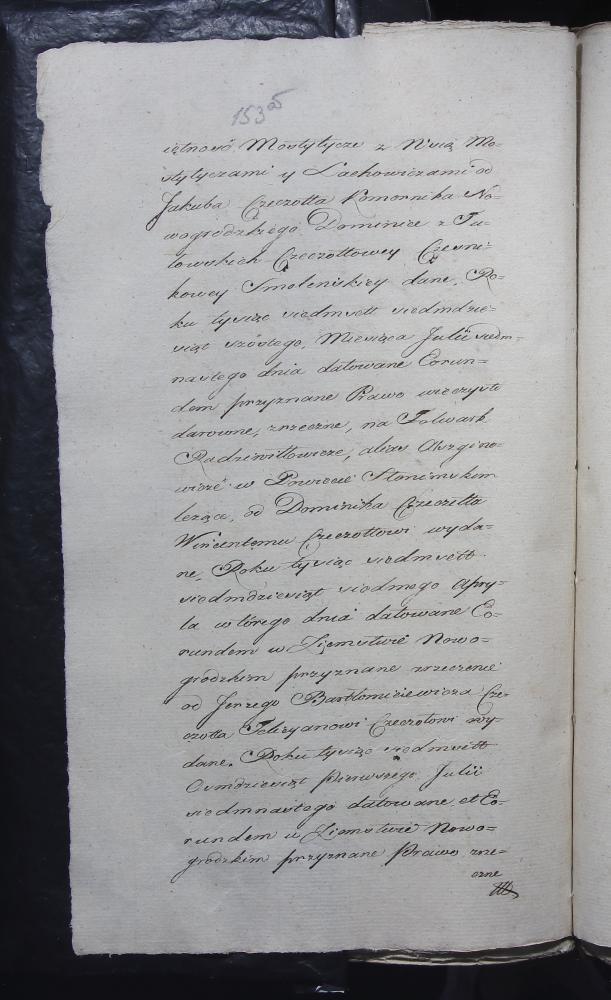 153
iętność Mostytycze z Wsią Mo-
stytyczami y Lachowiczami od
Jakuba Czeczotta Komornika No-
wogrodzkiego Dominice z Tu-
łowskich Czeczottowey Czesni-
kowey Smolenskiey dane, Ro-
ku tysiąc siedmset siedmdzie-
siąt szostego, Miesiąca Julii siedm-
nastego dnia datowane Eorun-
dem przyznane Prawo wieczysto
darowne, zrzeczne, na Folwark
Radziwiłłowicze, alias
w Powiecie Słonimskim
leżące, od Dominika Czeczotta
Wincentemu Czeczottowi wyda-
ne, Roku tysiąc siedmsett
siedmdziesiąt siodmego Apry-
la wtorego dnia datowane Eo-
rundem w Ziemstwie Nowo-
grodzkim przyznane zrzeczenie
od Jerzego Bartłomieiewicza Cze-
czotta Felicyanowi Czeczotowi wy-
dane. Roku tysiąc siedmsett
Osmdziesiąt Pierwszego Julii
siedmnastego datowane, et Eo-
rundem w Ziemstwie Nowo-
grodzkim przyznane Prawo zrze-
czne